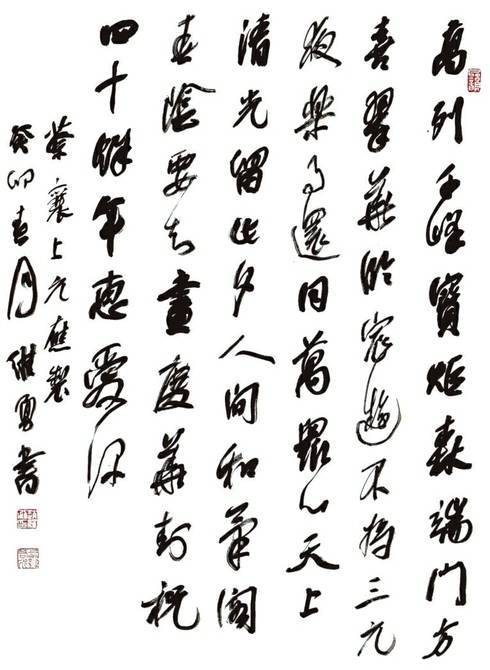 高列千峰寶炬森端門方
喜翠華臨宸遊不為三元
夜樂事還同萬眾心天上
清光留此夕人間和氣閣
春陰要知盡慶華封祝
四十餘年惠愛深
蔡襄上元應製
癸卯春月維勇書